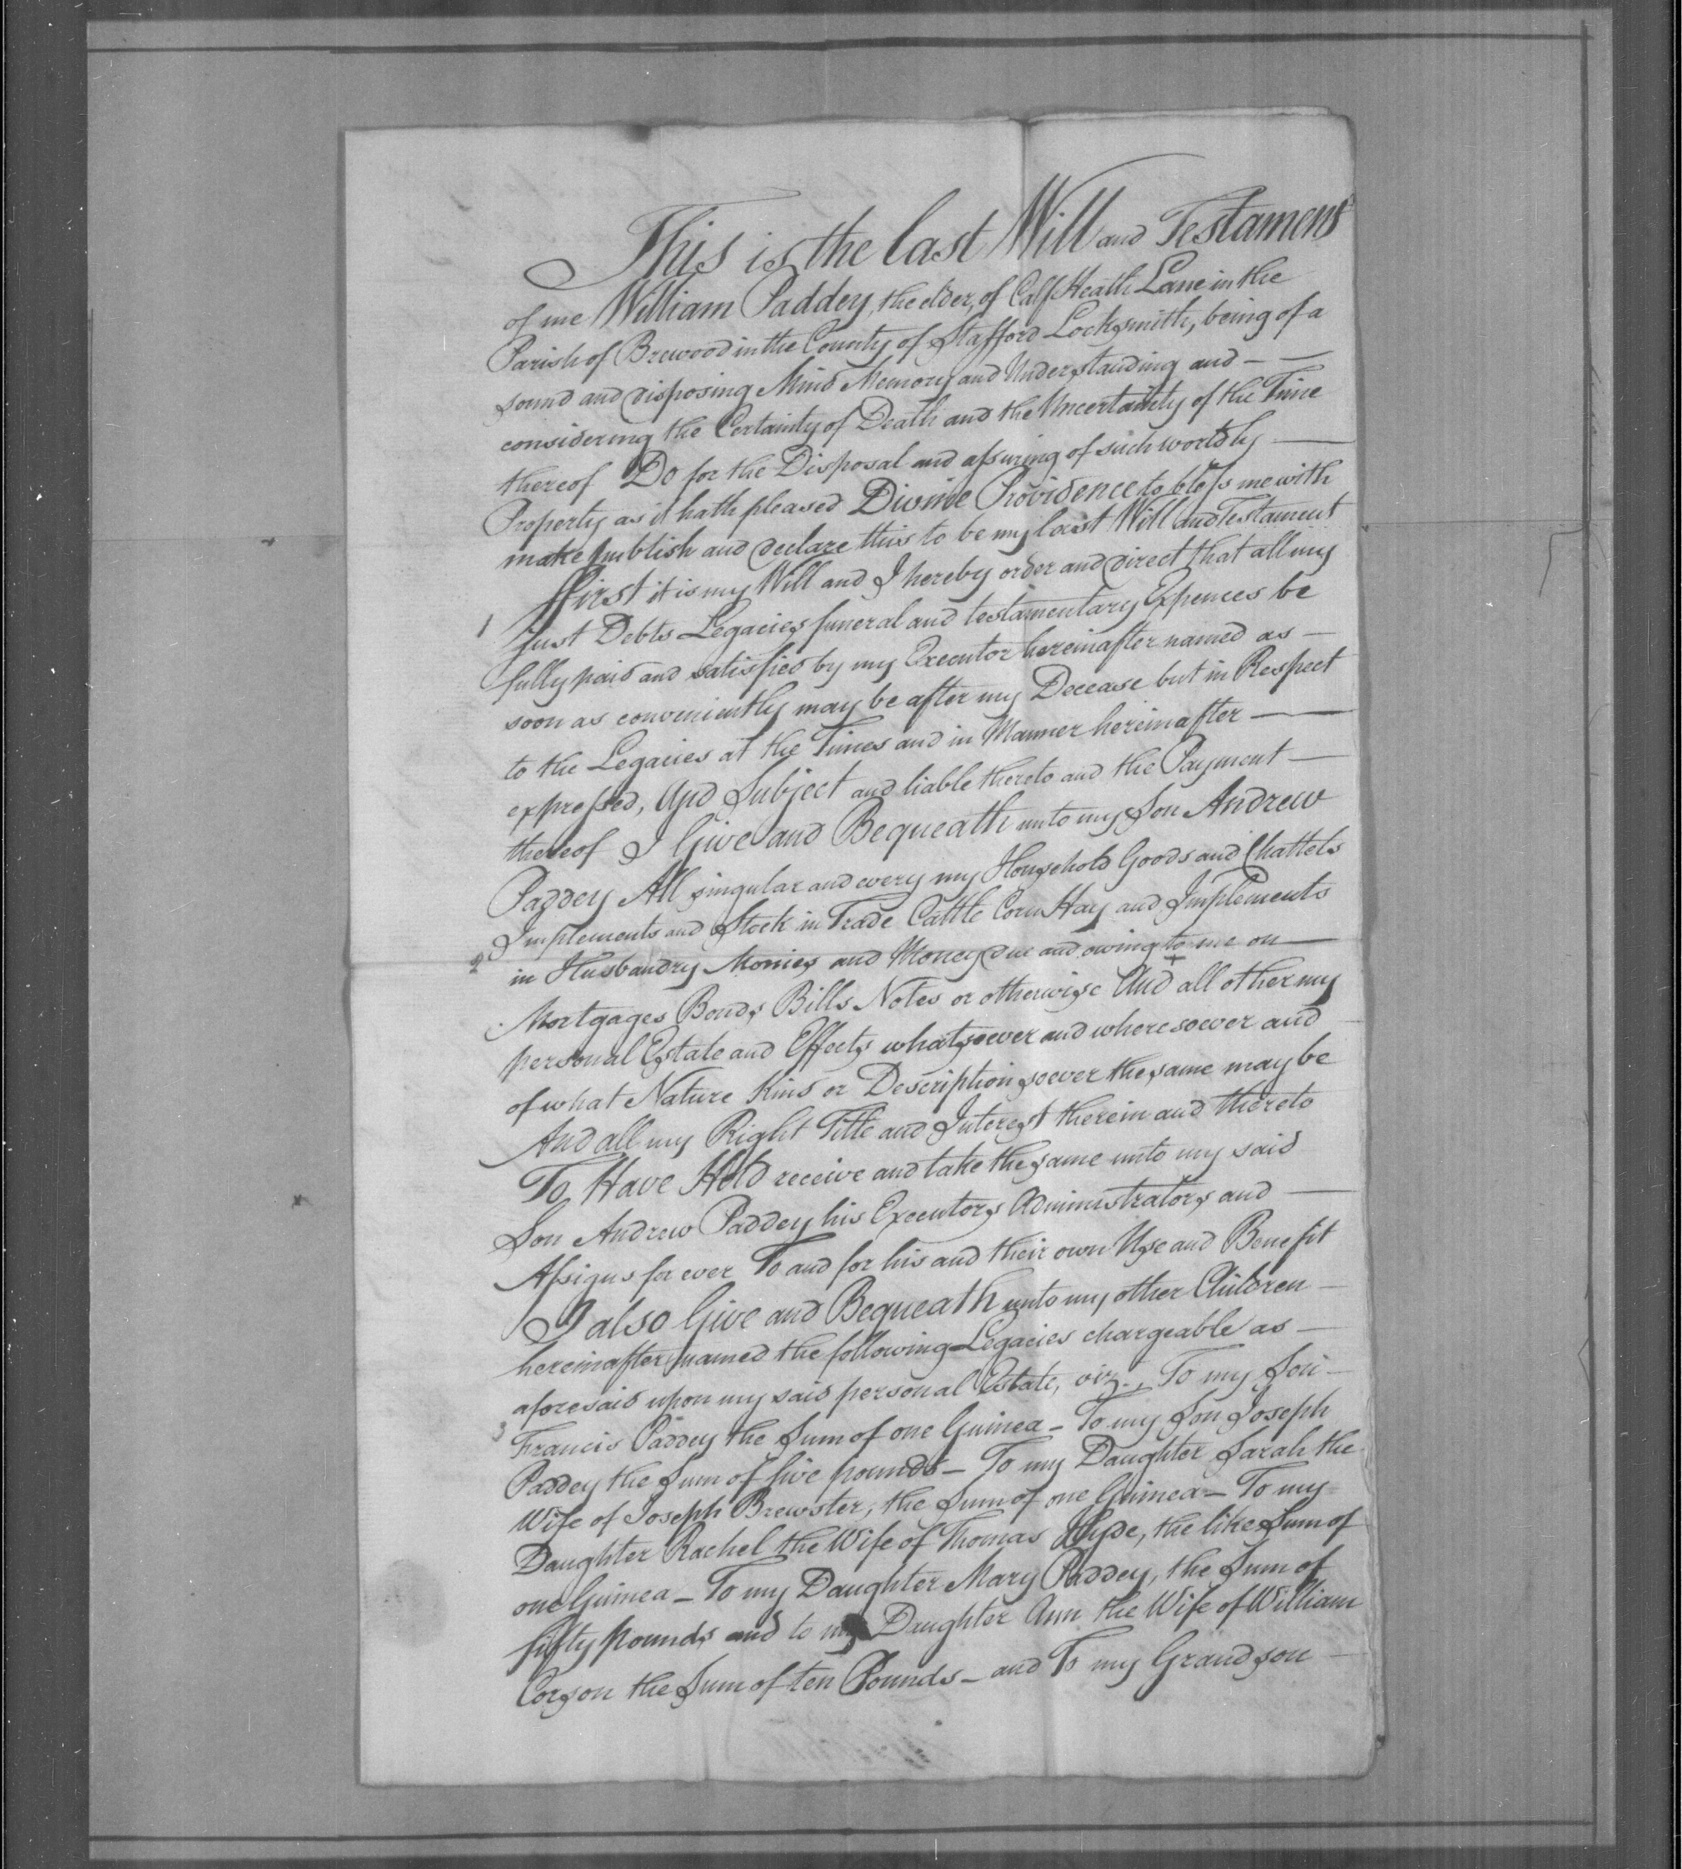 This is the last Will and Testament
of me William Paddey, the elder, of Calf Heath Lane in the
Parish of Brewood in the County of Stafford Locksmith, being of a
sound and disposing Mind Memory and Understanding and —
considering the Certainty of Death and the Uncertainty of the Time
thereof Do for the Disposal and assuring of such worldly —
Property as it hath pleased Divine Providence to bless me with
make publish and declare this to be my last Will and Testament
First it is my Will and I hereby order and direct that all my
1 just Debts Legacies funeral and testamentary Expences be
fully paid and satisfied by my Executor hereinafter named as —
soon as conveniently may be after my Decease but in Respect
to the Legacies at the Times and in Manner hereinafter —
expressed, And Subject and liable thereto and the Payment —
thereof I Give and Bequeath unto my Son Andrew
Paddey All singular and every my Household Goods and Chattels
Implements and Stock in Trade Cattle Corn Hay and Implements
2 in Husbandry Monies and Money due and owing to me on —
Mortgages Bonds Bills Notes or otherwise And all other my
personal Estate and Effects whatsoever and wheresoever and
of what Nature Kind or Description soever the same may be
And all my Right Title and Interest therein and thereto
To Have Hold receive and take the same unto my said
Son Andrew Paddey his Executors Administrators and —
Assigns for ever To and for his and their own Use and Benefit
I also Give and Bequeath unto my other Children —
hereinafter named the following Legacies chargeable as —
aforesaid upon my said personal Estate, viz., To my Son —
3 Francis Paddey the Sum of one Guinea — To my Son Joseph
Paddey the Sum of five pounds — To my Daughter Sarah the
Wife of Joseph Brewster, the Sum of one Guinea — To my
Daughter Rachel the Wife of Thomas Hyde, the like Sum of
one Guinea — To my Daughter Mary Paddey, the Sum of
fifty Pounds and to my Daughter Ann the Wife of William
Corson the Sum of ten Pounds — and To my Grandson —